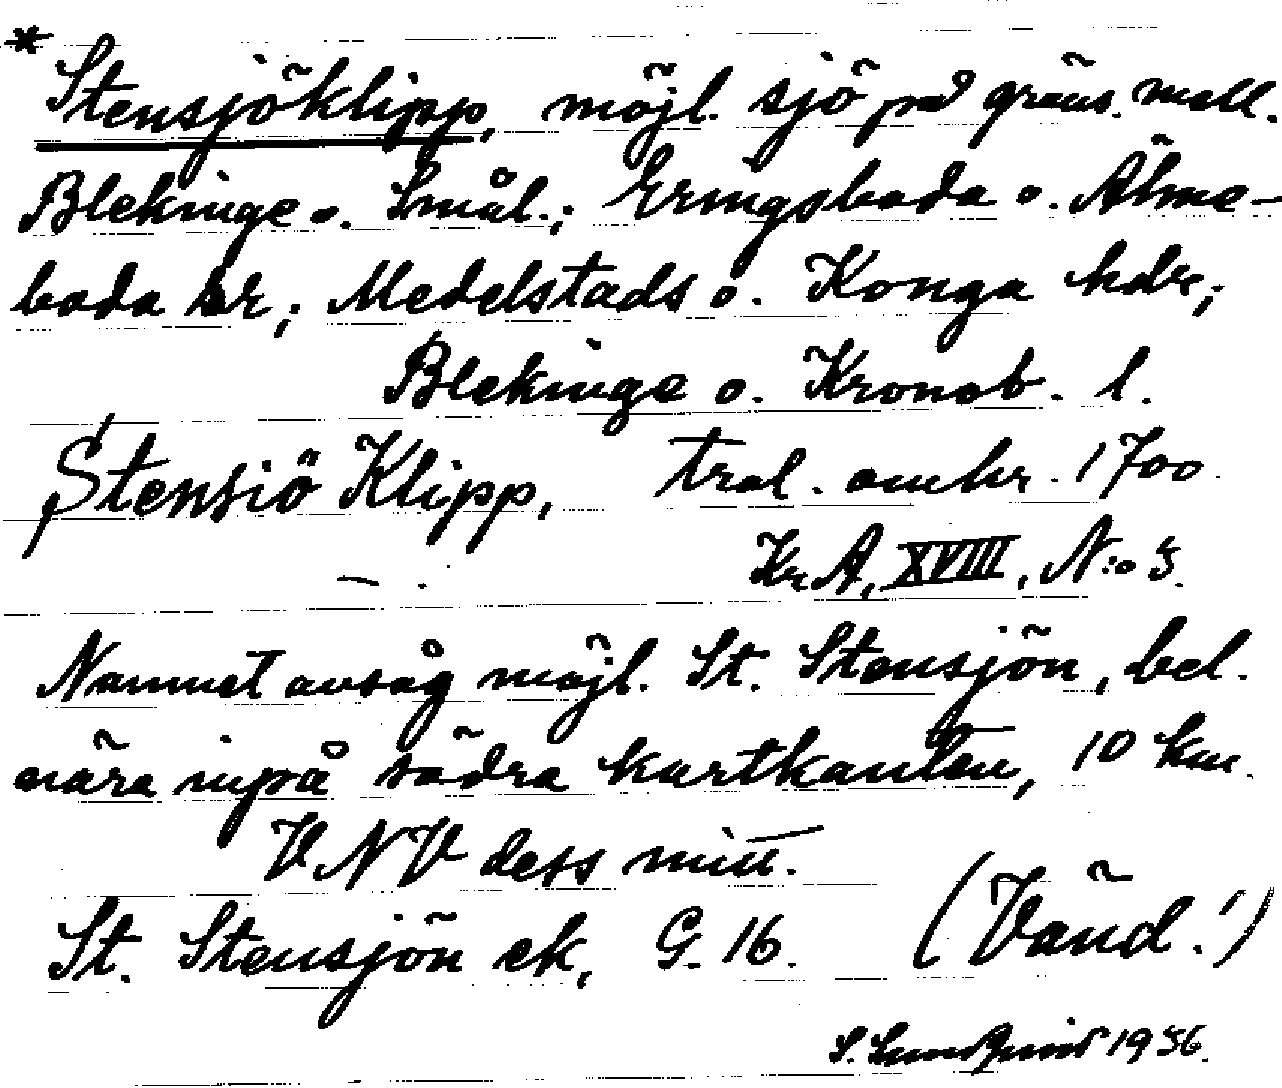 * Stensjöklipp, möjl. sjö på gräns. mell.
Blekinge o. Smål.; Eringsboda o. Älme-
boda snr; Medelstads o. Konga hdr;
Blekinge o. Kronob. l.
Stensiö Klipp, tral. omkr. 1700.
KrA, XVIII, N:o 5.
Namnet avsåg möjl. St. Stensjön, bel.
nära inpå södra kartkanten, 10 km
VNV dess mitt.
St. Stensjön ek, G. 16. (Vänd!)
S. Lundqvist 1956.